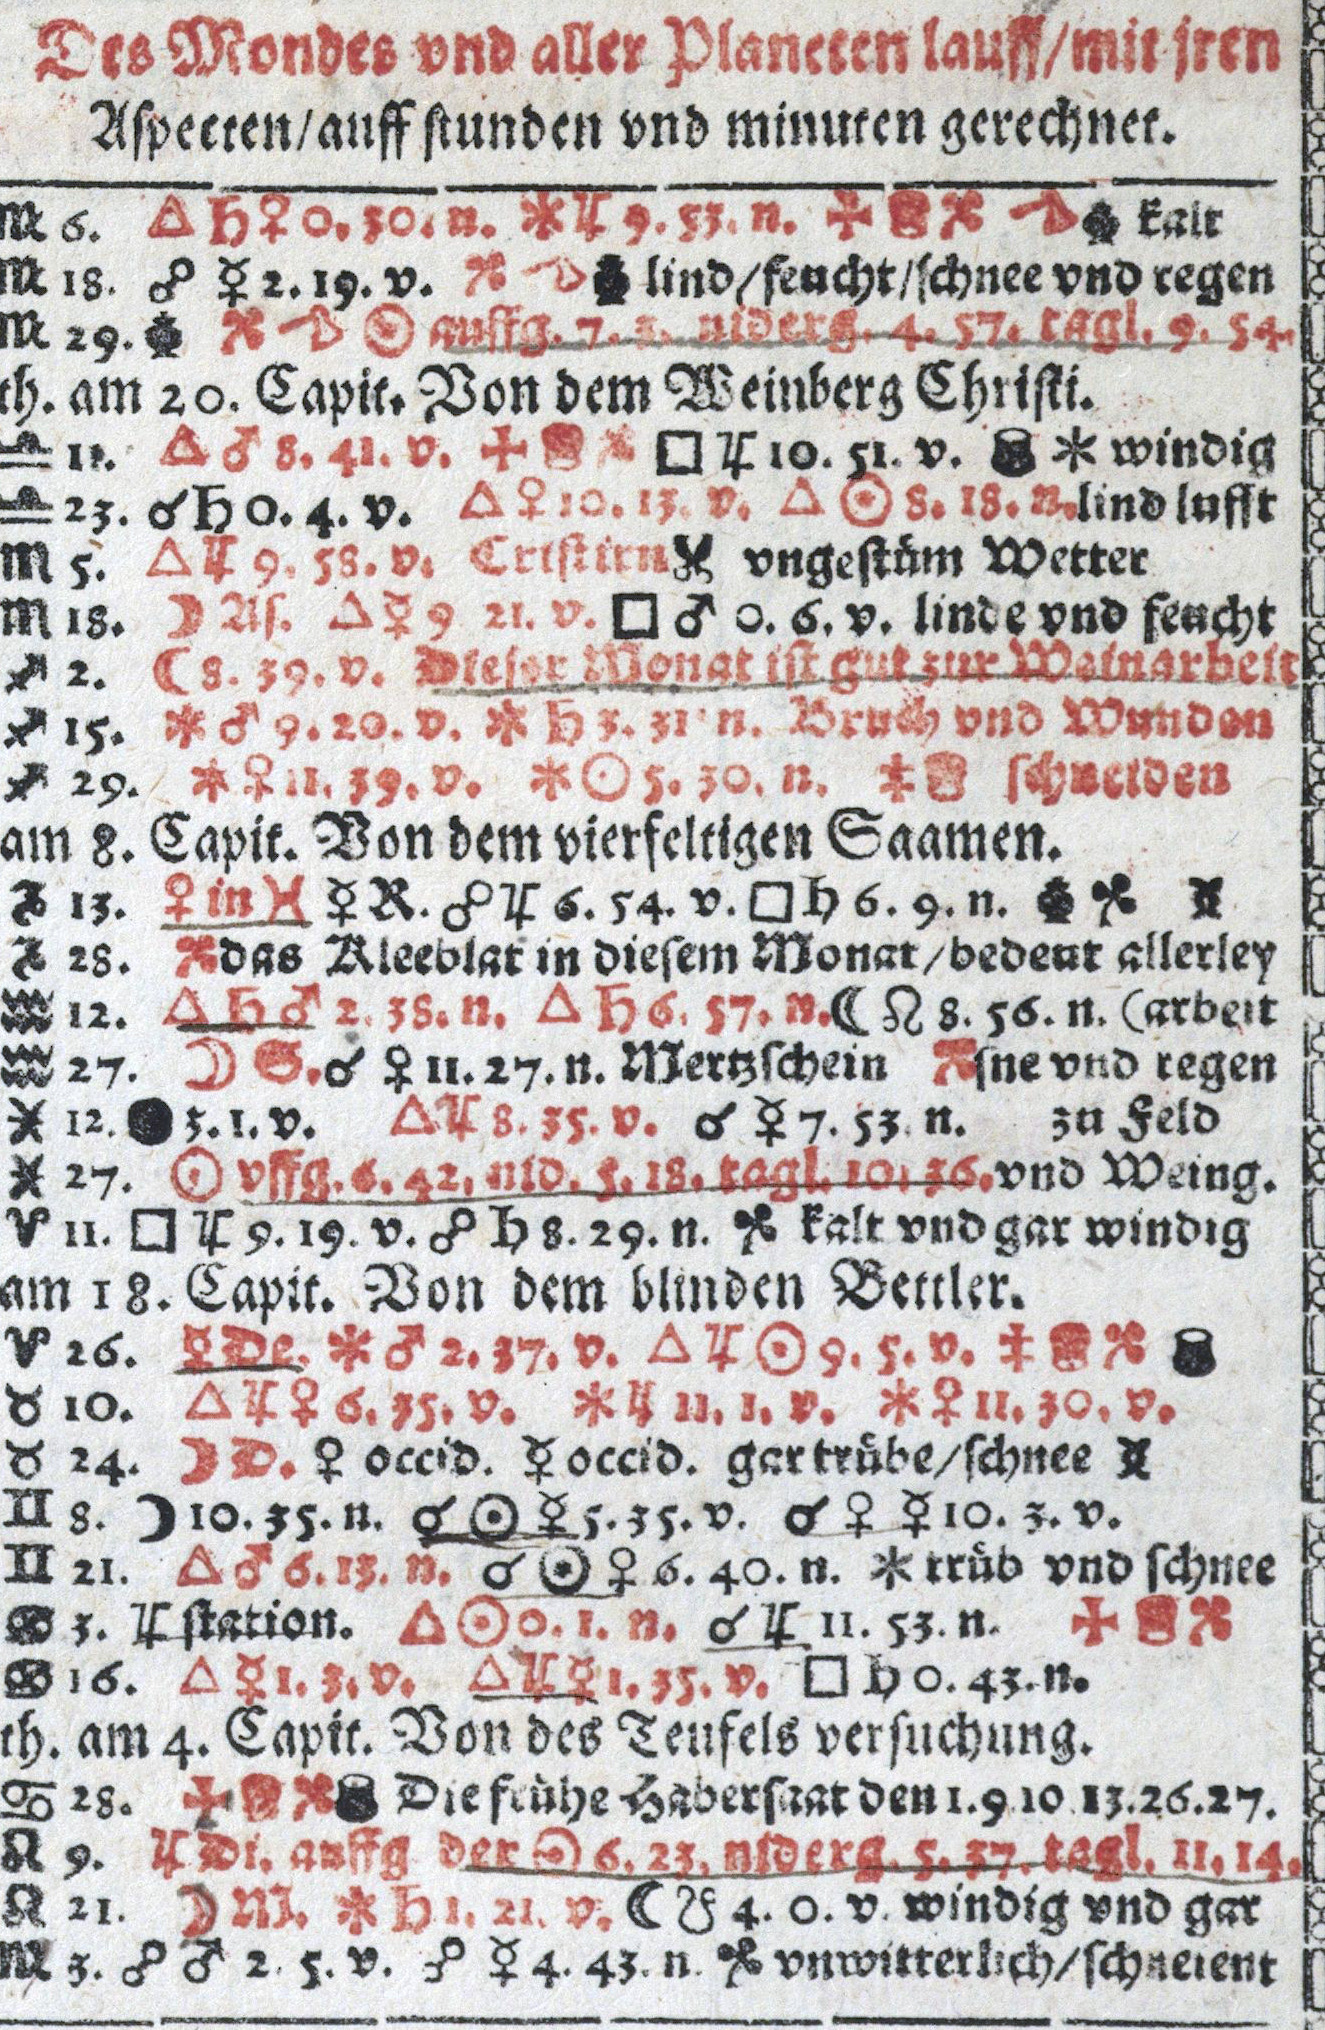 Des Mondes vnd aller Planeten lauff/mit jren
Aspecten/auff stunden vnd minuten gerechnet.
♍ 6. △ ♄ ♀ 0. 30. n. ✶ ♃ 9. 53. n. kalt
♍ 18. ☍ ☿ 2. 19. v. lind/feucht/schnee vnd regen
♍ 29. ☉ auffg. 7. 3. niderg. 4. 57. tagl. 9. 54.
th. am 20. Capit. Von dem Weinberg Christi.
♎ 11. △ ♂ 8. 41. v. □ ♃ 10. 51. v. ✶ windig
♎ 23. ☌ ♄ 0. 4. v. △ ♀ 10. 13. v. △ ☉ 8. 18. n. lind lufft
♏ 5. △ ♃ 9. 58. v. Cristirn vngestüm Wetter
♏ 18. ☽ As. △ ☿ 9 21. v. □ ♂ 0. 6. v. linde vnd feucht
♐ 2. ☾ 8. 39. v. Dieser Monat ist gut zur Weinarbeit
♐ 15. ✶ ♂ 9. 20. v. ✶ ♄ 3. 31 n. Bruch vnd Wunden
♐ 29. ✶ ♀ 11. 39. v. ✶ ☉ 5. 30. n. schneiden
am 8. Capit. Von dem vierfeltigen Saamen.
♑ 13. ♀ in ♓ ☿ R. ☍ ♃ 6. 54. v. □ ♄ 6. 9. n.
♑ 28. das Kleeblat in diesem Monat/bedeut allerley
♒ 12. △ ♄ ♂ 2. 38. n. △ ♄ 6. 57. n. ☾ ☊ 8. 56. n. (arbeit
♒ 27. ☽ S. ☌ ♀ 11. 27. n. Mertzschein sne vnd regen
♓ 12. ● 5. 1. v. △ ♃ 8. 35. v. ☌ ☿ 7. 53. n. zu Feld
♓ 27. ☉ vffg. 6. 42. nid. 5. 18. tagl. 10. 36. vnd Weing.
♈ 11. □ ♃ 9. 19. v. ☍ ♄ 8. 29. n. kalt vnd gar windig
am 18. Capit. Von dem blinden Bettler.
♈ 26. ☿ De. ✶ ♂ 2. 37. v. △ ♃ ☉ 9. 5. v.
♉ 10. △ ♃ ♀ 6. 35. v. ✶ ♃ 11. 1. v. ✶ ♀ 11. 30. v.
♉ 24. ☽ D. ♀ occid. ☿ occid. gar trübe/schnee
♊ 8. ☽ 10. 35. n. ☌ ☉ ☿ 5. 35. v. ☌ ♀ ☿ 10. 3. v.
♊ 21. △ ♂ 6. 13. n. ☌ ☉ ♀ 6. 40. n. ✶ trüb vnd schnee
♋ 3. ♃ station. △ ☉ 0. 1. n. ☌ ♃ 11. 53. n.
♋ 16. △ ☿ 1. 3. v. △ ♃ ☿ 1. 35. v. □ ♄ 0. 43. n.
th. am 4. Capit. Von des Teufels versuchung.
♋ 28. Die frühe Habersaat den 1. 9 10 13. 26. 27.
♌ 9. ♃ Di. auffg der ☉ 6. 23. niderg. 5. 37. tagl. 11. 14.
♌ 21. ☽ M. ✶ ♄ 1. 21. v. ☾ ☋ 4. 0. v. windig vnd gar
♍ 3. ☍ ♂ 2. 5. v. ☍ ☿ 4. 43. n. vnwitterlich/schneient